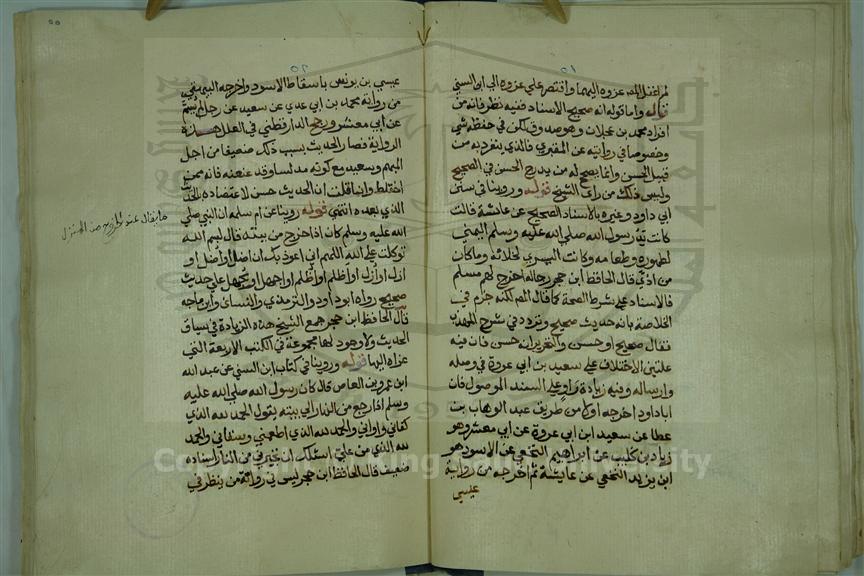 ٥١
لم اغفل المصنف عزوه اليهما واقتصر على عزوه الى ابن السني
قوله واما قوله انه صحيح الاسناد ففيه نظر فانه من
افراد محمد بن عجلان وهو صدوق لكن في حفظه شي
وخصوصا في روايته عن المقبري فالذي ينفرد به من
قبيل الحسن وانما يصحح له من يدرج الحسن في الصحيح
وليس ذلك من راي الشيخ قوله وروينا في سنن
ابي داود وغيره بالاسناد الصحيح عن عائشة قالت
كانت يد رسول الله صلى الله عليه وسلم اليمنى
لطهوره وطعامه وكانت اليسرى لخلائه وما كان
من اذى قال الحافظ ابن حجر رجاله اخرج لهم مسلم
فالاسناد على شرط الصحة كما قال المص لكنه جزم في
الخلاصة بانه حديث صحيح وتردد في شرح المهذب
فقال صحيح او حسن والتحرير انه حسن فان فيه
علتين الاختلاف على سعيد بن ابي عروة في وصله
وارساله وفيه زيادة راو على السند الموصول فان
ابا داود اخرجه اولا من طريق عبد الوهاب بن
عطا عن سعيد ابن ابي عروة عن ابي معشر وهو
زياد بن كليب عن ابراهيم النخعي عن الاسود هو
ابن يزيد النخعي عن عايشة ثم اخرجه من رواية
عيسى
٥٢
عيسي بن يونس باسقاط الاسود واخرجه البيهقي
من رواية محمد بن ابي عدي عن سعيد عن رجل لم يسم
عن ابي معشر ورجح الدارقطني في العلل هذه
الرواية فصار الحديث بسبب ذلك ضعيفا من اجل
المبهم وسعيد مع كونه مدلسا وقد عنعنه فانه ممن
اختلط وانما قلت ان الحديث حسن لاعتضاده بالحديث
الذي بعده انتهى قوله روينا عن ام سلمة ان النبي صلى
الله عليه وسلم كان اذا خرج من بيته قال بسم الله
توكلت على الله اللهم اني اعوذ بك ان اضل او اضل او
ازل او ازل او اظلم او اظلم او اجهل او يجهل علي حديث
صحيح رواه ابو داود والترمذي والنسائ وابن ماجه
قال الحافظ ابن حجر جمع الشيخ هذه الزيادة في سياق
الحديث ولا وجود لها مجموعة في الكتب الاربعة التي
عزاه اليها قوله وروينا في كتاب ابن السني عن عبد الله
ابن عمرو بن العاص قال كان رسول الله صلى الله عليه
وسلم اذا رجع من النهار الى بيته يقول الحمد لله الذي
كفاني واواني والحمد لله الذي اطعمني وسقاني والحمد
لله الذي من علي اسئلك ان تجيرني من النار اسناده
ضعيف قال الحافظ ابن حجر ليس في رواته من ينظر في
ما يقال عند الخروج من المنزل
٥٥